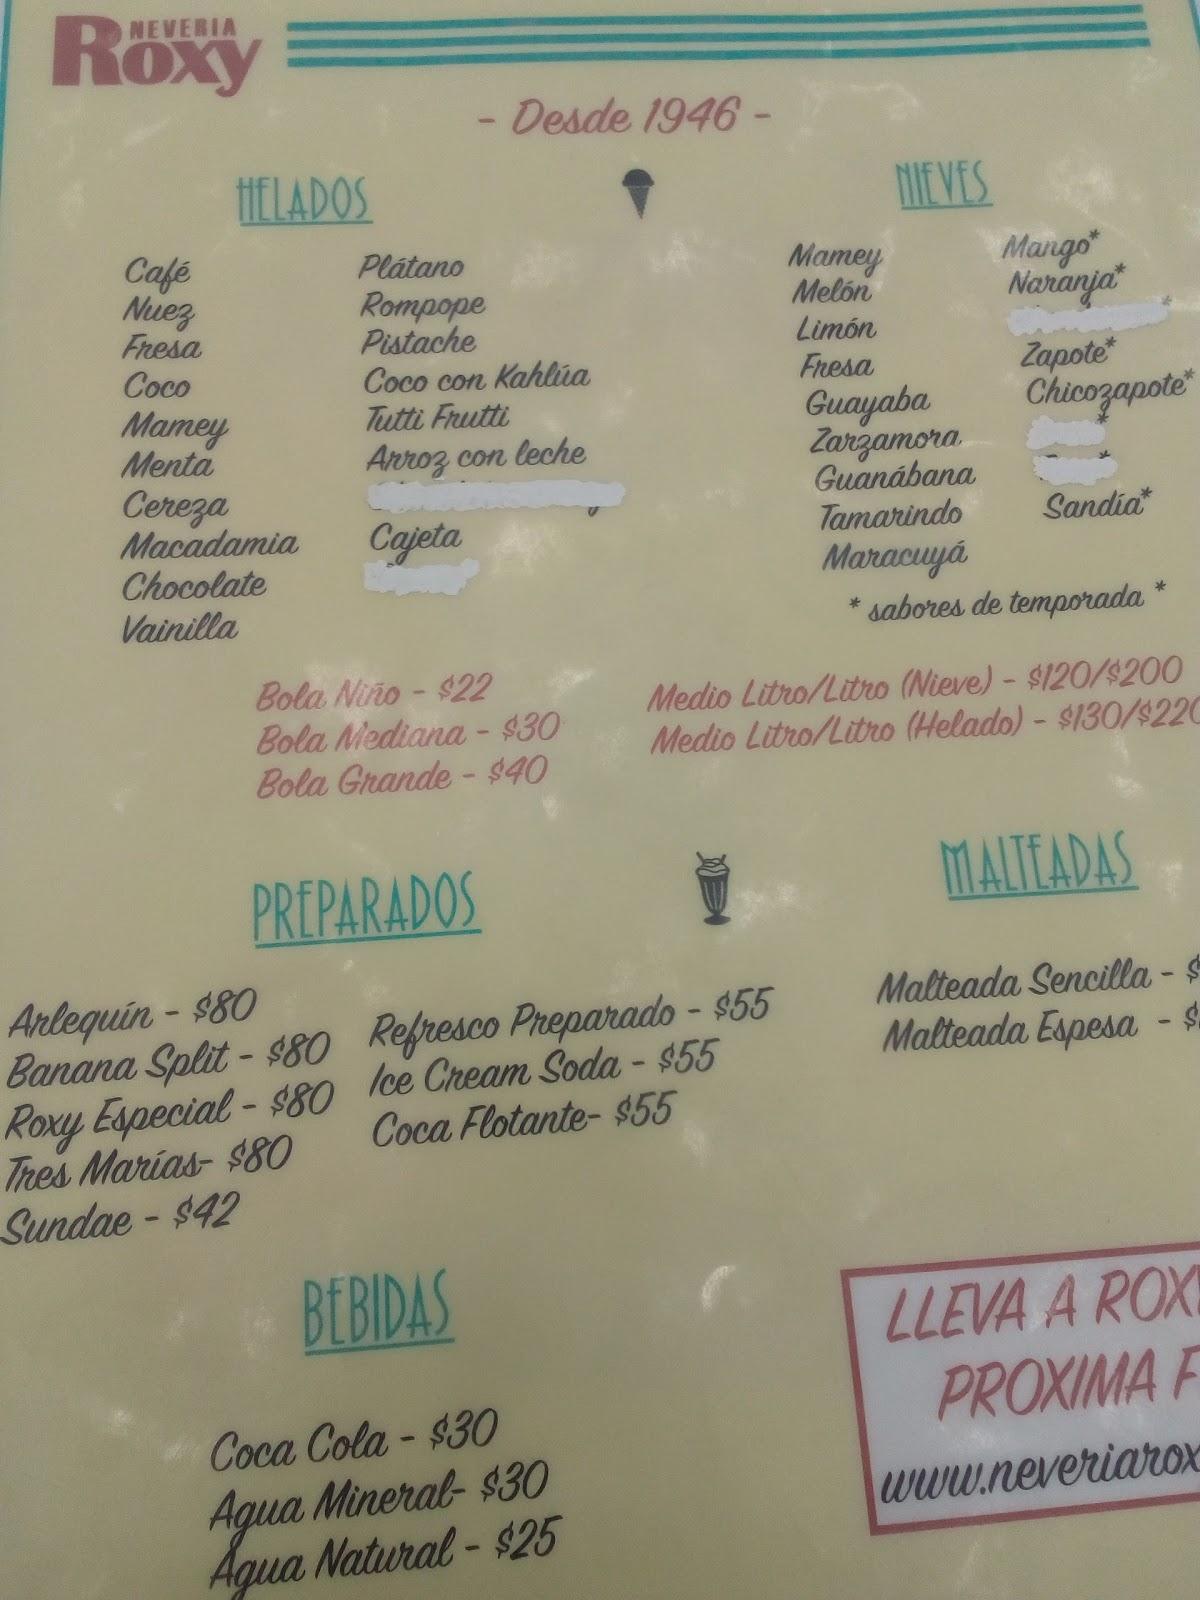 NEVERIA
Roxy
- Desde 1946 -
HELADOS
Café
Nuez
Fresa
Coco
Mamey
Menta
Cereza
Macadamia
Chocolate
Vainilla
Plátano
Rompope
Pistache
Coco con Kahlúa
Tutti Frutti
Arroz con leche
Cajeta
NIEVES
Mamey
Melón
Limón
Fresa
Guayaba
Zarzamora
Guanábana
Tamarindo
Maracuyá
Mango*
Naranja*
*
Zapote*
Chicozapote*
*
*
Sandía*
* sabores de temporada *
Bola Niño - $22
Bola Mediana - $30
Bola Grande - $40
Medio Litro/Litro (Nieve) - $120/$200
Medio Litro/Litro (Helado) - $130/$220
PREPARADOS
Arlequín - $80
Banana Split - $80
Roxy Especial - $80
Tres Marías- $80
Sundae - $42
Refresco Preparado - $55
Ice Cream Soda - $55
Coca Flotante- $55
MALTEADAS
Malteada Sencilla - $
Malteada Espesa - $
BEBIDAS
Coca Cola - $30
Agua Mineral- $30
Agua Natural - $25
LLEVA A ROXY
PROXIMA F
www.neveriarox